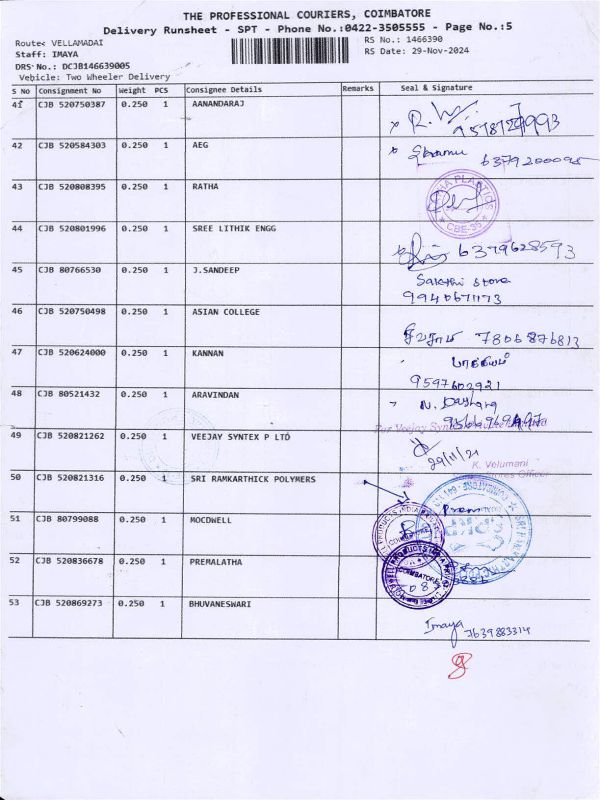 THE PROFESSIONAL COURIERS, COIMBATORE
Delivery Runsheet - SPT - Phone No.:0422-3505555 - Page No.:5
Route: VELLAMADAI
RS No.: 1466390
Staff: IMAYA
RS Date: 29-Nov-2024
DRS No.: DCJB146639005
Vehicle: Two Wheeler Delivery
S No Consignment No Weight PCS Consignee Details Remarks Seal & Signature
41 CJB 520750387 0.250 1 AANANDARAJ
42 CJB 520584303 0.250 1 AEG
43 CJB 520808395 0.250 1 RATHA
PLASTICS
CBE-35
44 CJB 520801996 0.250 1 SREE LITHIK ENGG 6379628593
45 CJB 80766530 0.250 1 J.SANDEEP Sakthi Store
9940671173
46 CJB 520750498 0.250 1 ASIAN COLLEGE 7806876813
47 CJB 520624000 0.250 1 KANNAN
9597602921
48 CJB 80521432 0.250 1 ARAVINDAN
49 CJB 520821262 0.250 1 VEEJAY SYNTEX P LTD
K. Velumani
50 CJB 520821316 0.250 1 SRI RAMKARTHICK POLYMERS
51 CJB 80799088 0.250 1 MOCDWELL
52 CJB 520836678 0.250 1 PREMALATHA
COIMBATORE
53 CJB 520869273 0.250 1 BHUVANESWARI
Imaya 7639883314